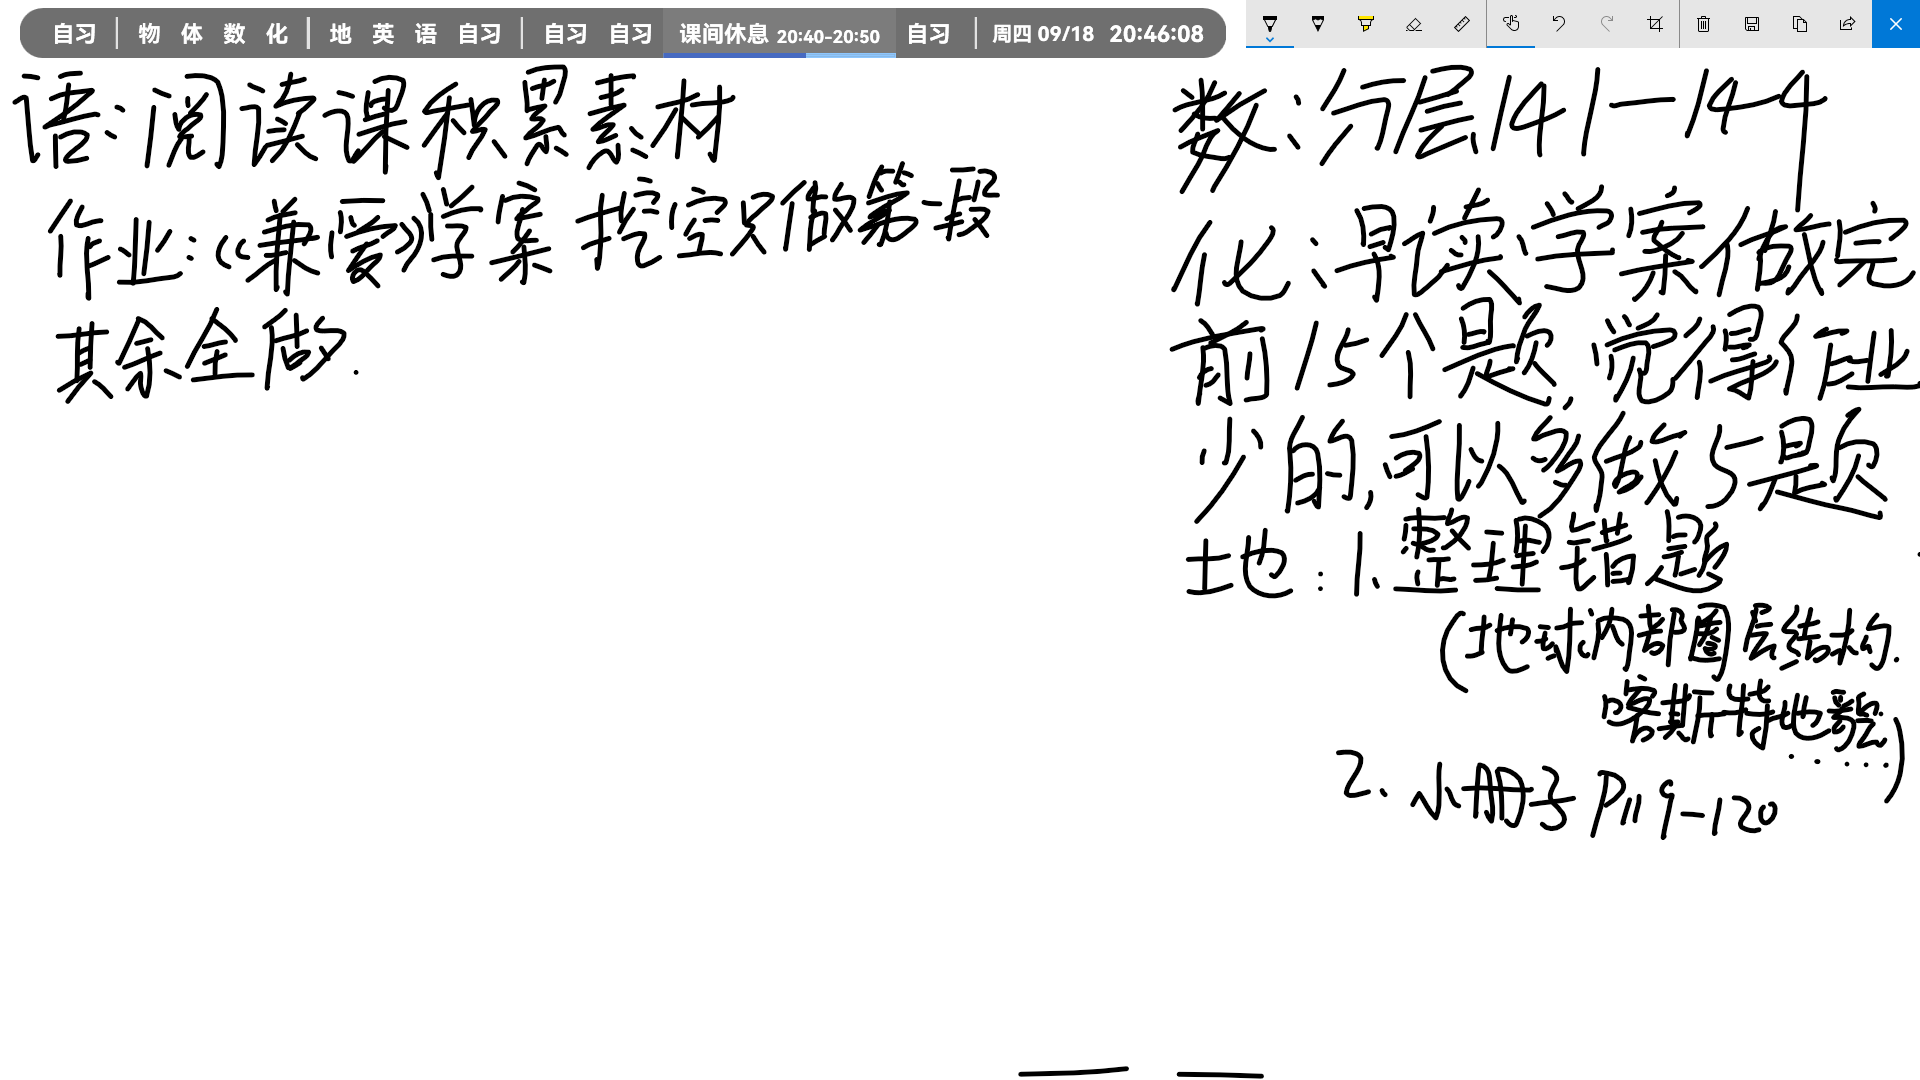 自习 | 物 体 数 化 | 地 英 语 自习 | 自习 自习 课间休息 20:40-20:50 自习 | 周四 09/18 20:46:08
语:阅读课积累素材
作业:《兼爱》学案 挖空只做第一段
其余全做.
数:分层141—144
化:早读学案做完
前15个题,觉得作业
少的,可以多做5题
地:1.整理错题
(地球内部圈层结构.
喀斯特地貌......)
2.小册子P119-120